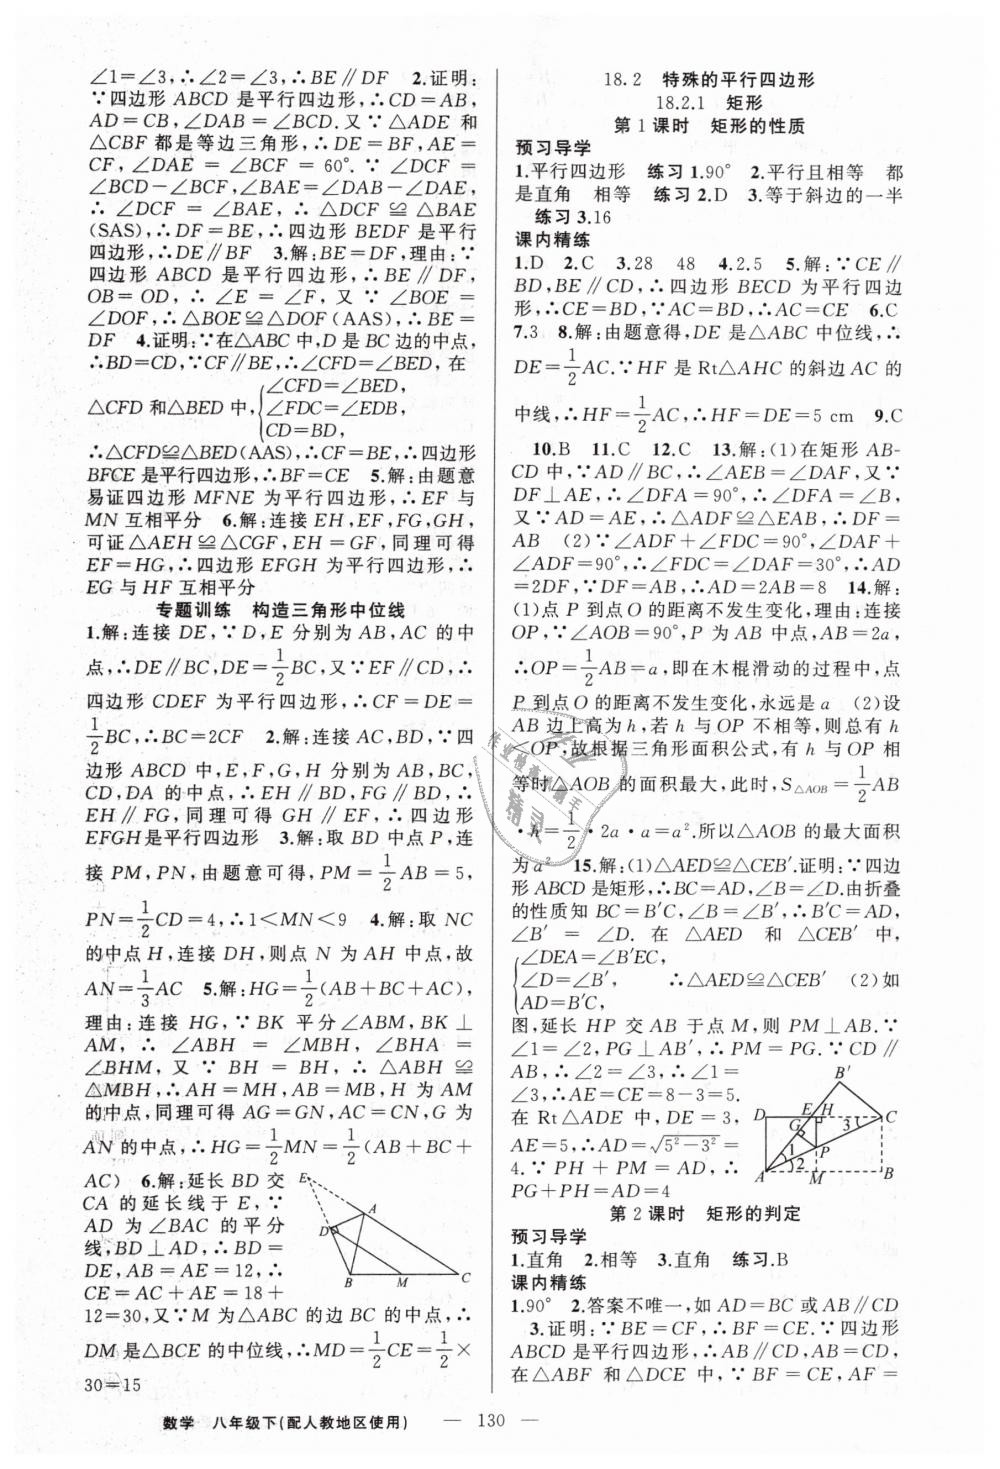 ∠1=∠3,∴∠2=∠3,∴BE∥DF　2.证明:
∵四边形 ABCD 是平行四边形,∴CD=AB,
AD=CB,∠DAB=∠DCB.又∵△ADE 和
△CBF 都是等边三角形,∴DE=BF,AE=
CF,∠DAE=∠BCF=60°.∵∠DCF=
∠BCD-∠BCF,∠BAE=∠DAB-∠DAE,
∴∠DCF=∠BAE,∴△DCF≌△BAE
(SAS),∴DF=BE,∴四边形 BEDF 是平行
四边形,∴DE∥BF　3.解:BE=DF,理由:∵
四边形 ABCD 是平行四边形,∴BE∥DF,
OB=OD,∴∠E=∠F,又∵∠BOE=
∠DOF,∴△BOE≌△DOF(AAS),∴BE=
DF　4.证明:∵在△ABC 中,D 是 BC 边的中点,
∴BD=CD,∵CF∥BE,∴∠CFD=∠BED,在
△CFD 和△BED 中,{∠CFD=∠BED,
∠FDC=∠EDB,
CD=BD,
∴△CFD≌△BED(AAS),∴CF=BE,∴四边形
BFCE 是平行四边形,∴BF=CE　5.解:由题意
易证四边形 MFNE 为平行四边形,∴EF 与
MN 互相平分　6.解:连接 EH,EF,FG,GH,
可证△AEH≌△CGF,EH=GF,同理可得
EF=HG,∴四边形 EFGH 为平行四边形,∴
EG 与 HF 互相平分
专题训练　构造三角形中位线
1.解:连接 DE,∵D,E 分别为 AB,AC 的中
点,∴DE∥BC,DE=1/2BC,又∵EF∥CD,∴
四边形 CDEF 为平行四边形,∴CF=DE=
1/2BC,∴BC=2CF　2.解:连接 AC,BD,∵四
边形 ABCD 中,E,F,G,H 分别为 AB,BC,
CD,DA 的中点,∴EH∥BD,FG∥BD,∴
EH∥FG,同理可得 GH∥EF,∴四边形
EFGH是平行四边形　3.解:取 BD 中点 P,连
接 PM,PN,由题意可得,PM=1/2AB=5,
PN=1/2CD=4,∴1<MN<9　4.解:取 NC
的中点 H,连接 DH,则点 N 为 AH 中点,故
AN=1/3AC　5.解:HG=1/2(AB+BC+AC),
理由:连接 HG,∵BK 平分∠ABM,BK⊥
AM,∴∠ABH=∠MBH,∠BHA=
∠BHM,又∵BH=BH,∴△ABH≌
△MBH,∴AH=MH,AB=MB,H 为 AM
的中点,同理可得 AG=GN,AC=CN,G 为
AN 的中点,∴HG=1/2MN=1/2(AB+BC+
AC)　6.解:延长 BD 交
CA 的延长线于 E,∵
AD 为∠BAC 的平分
线,BD⊥AD,∴BD=
DE,AB=AE=12,∴
CE=AC+AE=18+
12=30,又∵M 为△ABC 的边 BC 的中点,∴
DM 是△BCE 的中位线,∴MD=1/2CE=1/2×
30=15
E
A
D
B
M
C
18.2　特殊的平行四边形
18.2.1　矩形
第 1 课时　矩形的性质
预习导学
1.平行四边形　练习 1.90°　2.平行且相等　都
是直角　相等　练习 2.D　3.等于斜边的一半
练习 3.16
课内精练
1.D　2.C　3.28　48　4.2.5　5.解:∵CE∥
BD,BE∥CD,∴四边形 BECD 为平行四边
形,∴CE=BD,∵AC=BD,∴AC=CE　6.C
7.3　8.解:由题意得,DE 是△ABC 中位线,∴
DE=1/2AC.∵HF 是 Rt△AHC 的斜边 AC 的
中线,∴HF=1/2AC,∴HF=DE=5 cm　9.C
10.B　11.C　12.C　13.解:(1)在矩形 AB-
CD 中,∵AD∥BC,∴∠AEB=∠DAF,又∵
DF⊥AE,∴∠DFA=90°,∴∠DFA=∠B,
又∵AD=AE,∴△ADF≌△EAB,∴DF=
AB　(2)∵∠ADF+∠FDC=90°,∠DAF+
∠ADF=90°,∴∠FDC=∠DAF=30°,∴AD
=2DF,∵DF=AB,∴AD=2AB=8　14.解:
(1)点 P 到点 O 的距离不发生变化,理由:连接
OP,∵∠AOB=90°,P 为 AB 中点,AB=2a,
∴OP=1/2AB=a,即在木棍滑动的过程中,点
P 到点 O 的距离不发生变化,永远是 a　(2)设
AB 边上高为 h,若 h 与 OP 不相等,则总有 h
<OP,故根据三角形面积公式,有 h 与 OP 相
等时△AOB 的面积最大,此时,S△AOB=1/2AB
·h=1/2·2a·a=a².所以△AOB 的最大面积
为 a²　15.解:(1)△AED≌△CEB′.证明:∵四边
形 ABCD 是矩形,∴BC=AD,∠B=∠D.由折叠
的性质知 BC=B′C,∠B=∠B′,∴B′C=AD,
∠B′=∠D.在△AED 和△CEB′中,
{∠DEA=∠B′EC,
∠D=∠B′,　∴△AED≌△CEB′　(2)如
AD=B′C,
图,延长 HP 交 AB 于点 M,则 PM⊥AB.∵
∠1=∠2,PG⊥AB′,∴PM=PG.∵CD∥
AB,∴∠2=∠3,∴∠1=
∠3,∴AE=CE=8-3=5.
在 Rt△ADE 中,DE=3,
AE=5,∴AD=√(5²-3²)=
4.∵PH+PM=AD,∴
PG+PH=AD=4
B′
D
E
H
C
G
3
1
2
P
A
M
B
第 2 课时　矩形的判定
预习导学
1.直角　2.相等　3.直角　练习.B
课内精练
1.90°　2.答案不唯一,如 AD=BC 或 AB∥CD
3.证明:∵BE=CF,∴BF=CE.∵四边形
ABCD 是平行四边形,∴AB∥CD,AB=CD,
在△ABF 和△DCE 中,∵BF=CE,AF=
数学　八年级下(配人教地区使用)　— 130 —